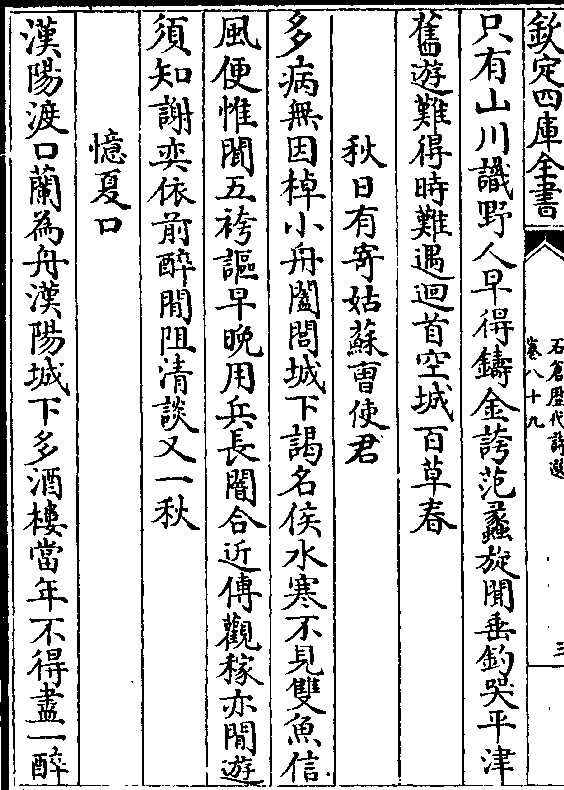 欽定四庫全書
石倉歴代詩選
卷八十九
三
只有山川識野人早得鑄金誇范蠡旋聞垂釣哭平津
舊遊難得時難遇迴首空城百草春
秋日有寄姑蘇曺使君
多病無因棹小舟闔閭城下謁名侯水寒不見雙魚信
風便惟聞五袴謳早晚用兵長闇合近傳觀稼亦閒遊
須知謝奕依前醉閒阻清談又一秋
憶夏口
漢陽渡口蘭為舟漢陽城下多酒樓當年不得盡一醉